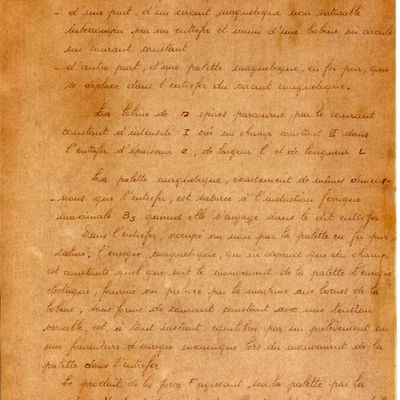 - d'une part, d'un circuit magnétique non saturable
interrompu par un entrefer et muni d'une bobine en circuité
un courant constant
- d'autre part, d'une palette magnétique, en fer pur, qui
se déplace dans l'entrefer du circuit magnétique.
La bobine de n spires parcourue par le courant
constant d'intensité I crée un champ constant H dans
l'entrefer d'épaisseur e, de largeur l et de longueur L
La palette magnétique, exactement de mêmes dimen-
-sions que l'entrefer, est saturée à l'induction ferrique
maximale Bs quand elle s'engage dans le dit entrefer
Dans l'entrefer, occupé ou non par la palette en fer pur
saturé, l'énergie magnétique, qui ne dépend que du champ
est constante quel que soit le mouvement de la palette L'énergie
électrique, fournie ou prélevée par la machine aux bornes de la
bobine, sous forme de courant constant sous une tension
variable, est, à tout instant, équilibrée par un prélèvement ou
une fourniture d'énergie mécanique lors du mouvement de la
palette dans l'entrefer
Le produit de la force F agissant sur la palette par la